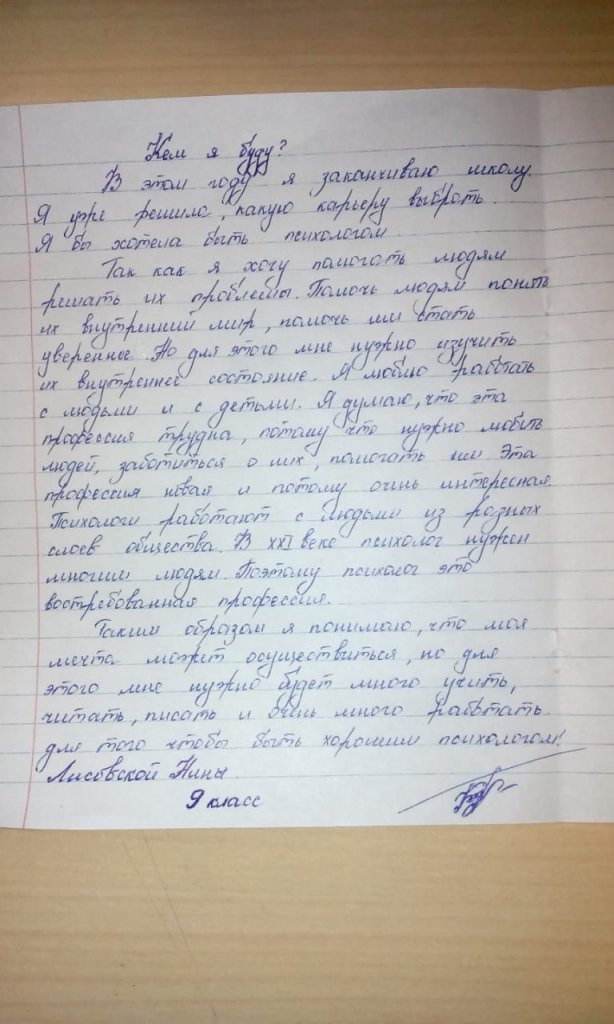 Кем я буду?
В этом году я заканчиваю школу.
Я уже решила, какую карьеру выбрать.
Я бы хотела быть психологом.
Так как я хочу помогать людям
решать их проблемы. Помочь людям понять
их внутренний мир, помочь им стать
увереннее. Но для этого мне нужно изучить
их внутреннее состояние. Я люблю работать
с людьми и с детьми. Я думаю, что эта
профессия трудна, потому что нужно любить
людей, заботиться о них, помогать им. Эта
профессия новая и потому очень интересная.
Психологи работают с людьми из разных
слоев общества. В XXI веке психолог нужен
многим людям. Поэтому психолог это
востребованная профессия.
Таким образом я понимаю, что моя
мечта может осуществиться, но для
этого мне нужно будет много учить,
читать, писать и очень много работать
для того чтобы быть хорошим психологом!
Лисовской Нины.
9 класс